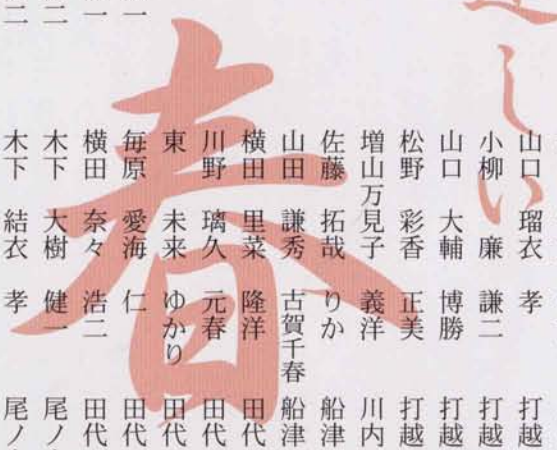 しい
春
山口 瑠衣 孝 打越
小柳 廉 謙二 打越
山口 大輔 博勝 打越
松野 彩香 正美 打越
増山万見子 義洋 川内
佐藤 拓哉 りか 船津
山田 謙秀 古賀千春 船津
横田 里菜 隆洋 田代
川野 璃久 元春 田代
東 未来 ゆかり 田代
一 毎原 愛海 仁 田代
一 横田 奈々 浩二 田代
二 木下 大樹 健一 尾ノ
二 木下 結衣 孝 尾ノ